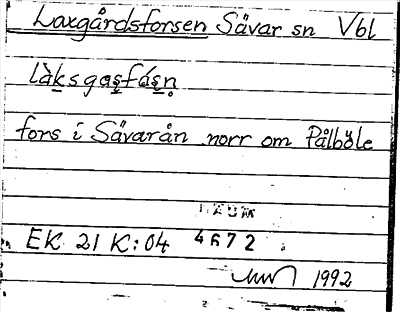 Laxgårdsforsen Sävar sn Vbl
làksgas̭fás̭n̥
fors i Sävarån norr om Pålböle
DAUM
EK 21 K:04 4672
1992